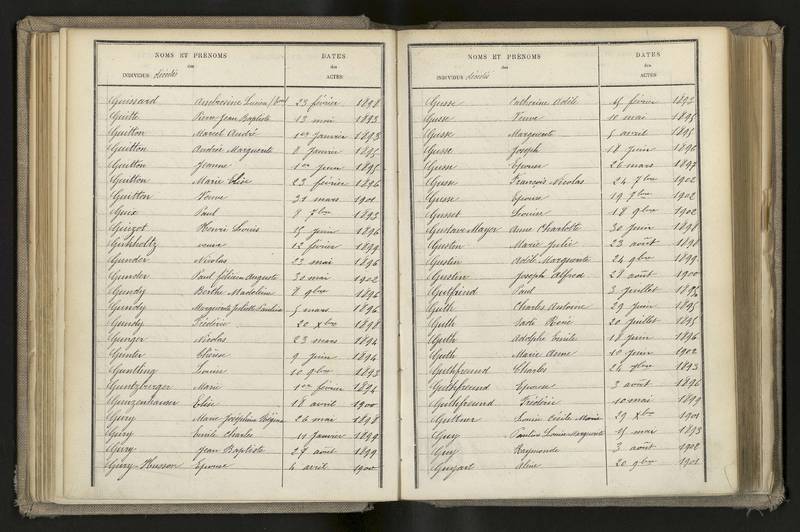 NOMS ET PRÉNOMS
des
INDIVIDUS décédés
DATES
des
ACTES
Guissard Ambroisine 23 février 1898
Guitte Pierre Jean Baptiste 13 mai 1893
Guitton Marcel André 1er janvier 1893
Guitton Andrée Marguerite 8 janvier 1895
Guitton Jeanne 1er juin 1895
Guitton Marie Elise 23 février 1896
Guitton Veuve 31 mars 1901
Guix Paul 8 7bre 1893
Guizot Henri Louis 25 juin 1896
Gukholtz veuve 12 février 1899
Gunder Nicolas 23 mai 1896
Gunder Paul félicien Auguste 30 mai 1902
Gundy Berthe Madeleine 8 9bre 1896
Gundy Marguerite Juliette 5 mars 1896
Gundy Frédéric 20 Xbre 1898
Gunger Nicolas 23 mars 1894
Gunter Thérèse 9 juin 1894
Guntling Louise 10 9bre 1893
Guntzburger Marie 1er février 1894
Gunzenhauser Elise 18 avril 1900
Gury Marie Joséphine 26 mai 1898
Gury Emile Charles 11 janvier 1899
Gury Jean Baptiste 27 août 1899
Gury-Husson Epouse 4 avril 1900
NOMS ET PRÉNOMS
des
INDIVIDUS décédés
DATES
des
ACTES
Gusse Catherine Adèle 15 février 1893
Gusse Veuve 10 mai 1895
Gusse Marguerite 5 avril 1895
Gusse Joseph 18 juin 1896
Gusse Epouse 26 mars 1897
Gusse François Nicolas 24 7bre 1902
Gusse Epouse 19 7bre 1902
Gusset Louise 18 9bre 1902
Gustave Mayer Anne Charlotte 30 juin 1898
Gustin Marie Julie 23 août 1898
Gustin Adèle Marguerite 24 9bre 1899
Gustin Joseph Alfred 28 août 1900
Gutfreind Paul 3 juillet 1896
Guth Charles Antoine 29 juin 1895
Guth René 20 juillet 1895
Guth Adolphe Emile 18 juin 1896
Guth Marie Anne 10 juin 1902
Guthfreund Charles 24 1893
Guthfreund Epouse 3 août 1896
Guthfreund Frédéric 10 mai 1899
Louise Cécile Marie 29 Xbre 1901
Guy Pauline Louise Marguerite 15 mai 1893
Guy Raymonde 3 août 1902
Guyart Aline 20 9bre 1901